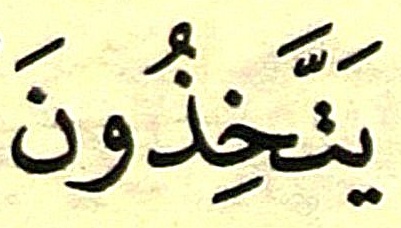 يَتَّخِذُونَ